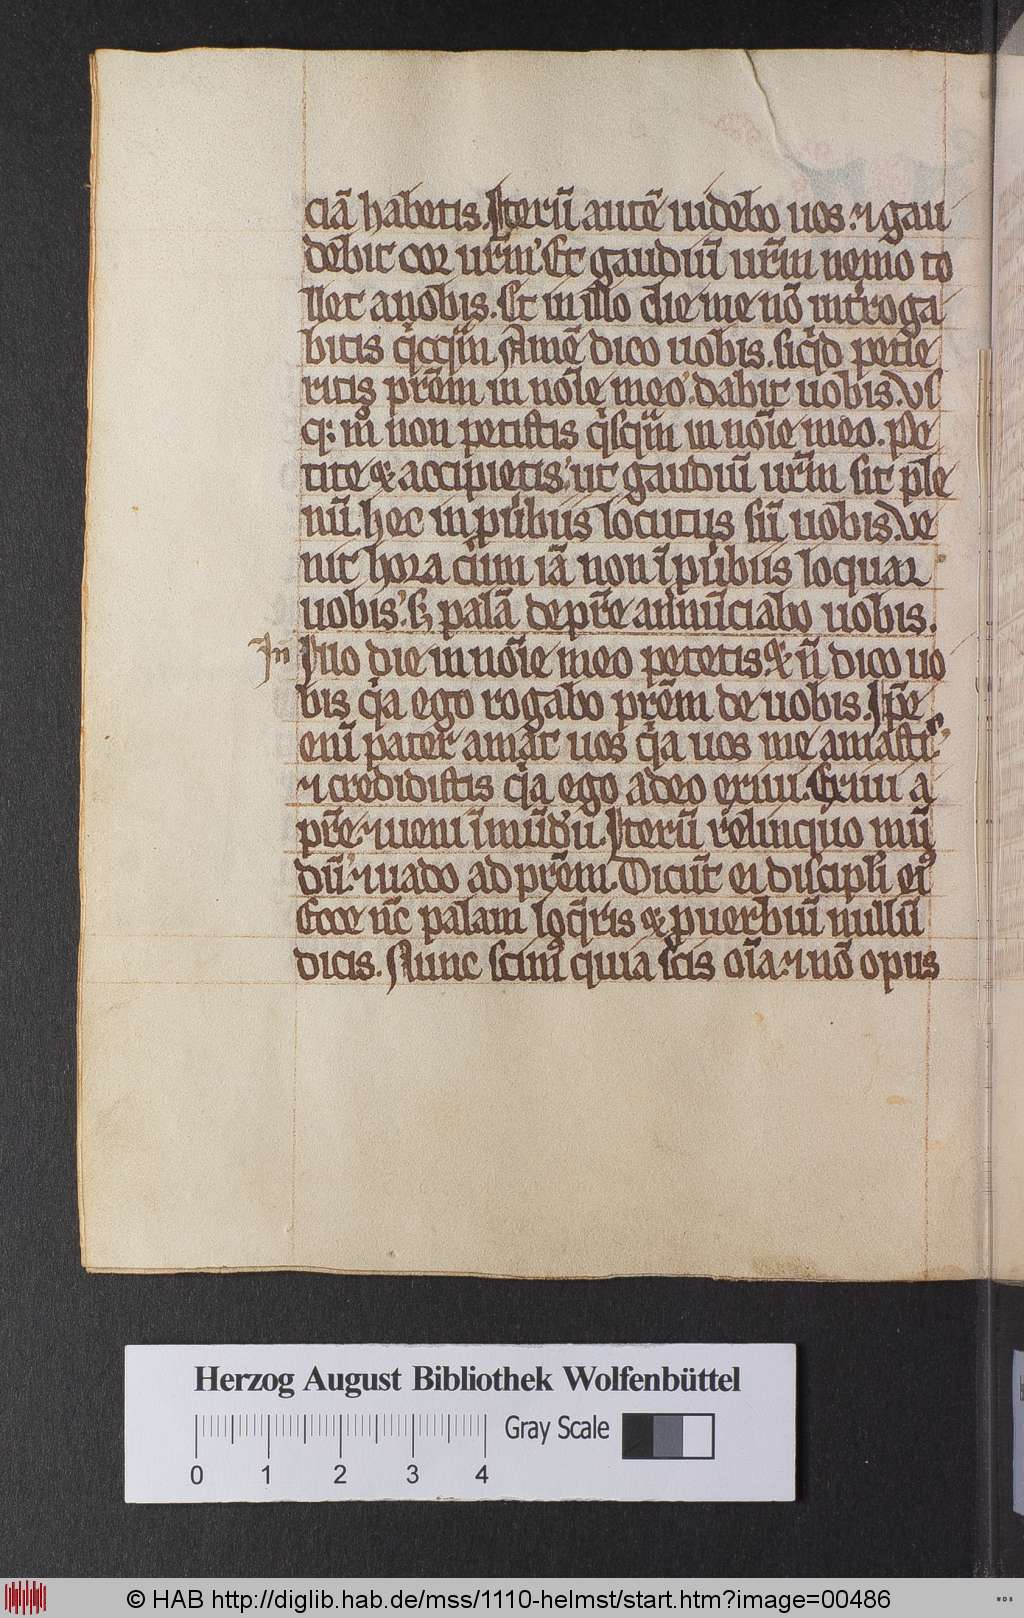 ciā habetis. Iterū autē uidebo uos: ⁊ gau
debit cor ur̄m. Et gaudiū ur̄m nemo to
llet a uobis. Et in illo die me nō int̓roga
bitis qͥcqͣm. Amē dico uobis. siqͥd petie
ritis pr̄em in nōie meo. dabit uobis. Vs
q: mͦ non petistis qͥsqͣm in nōie meo. Pe
tite & accipietis. ut gaudiū ur̄m sit ple
nū. hec in puͥbiis locutus sū uobis. Ve
nit hora cum iā non ī puͥbiis loquar
uobis. sꝫ palā de pr̄e annūciabo uobis.
In Illo die in nōie meo petetis. & ñ dico uo
bis qͥa ego rogabo pr̄em de uobis. Ip̄e
enī pater amat uos qͥa uos me amastis
⁊ credidistis qͥa ego a deo exiui. Exiui a
pr̄e ⁊ ueni ī mūdū. Iterū relinquo mū
dū. ⁊ uado ad pr̄em. Dicūt ei discipli eiͦ
Ecce nc̄ palam loqͣris & puerbiū nullū
dicis. Nunc scimͦ quia scis oīa. ⁊ nō opus
Herzog August Bibliothek Wolfenbüttel
Gray Scale
0 1 2 3 4
© HAB http://diglib.hab.de/mss/1110-helmst/start.htm?image=00486